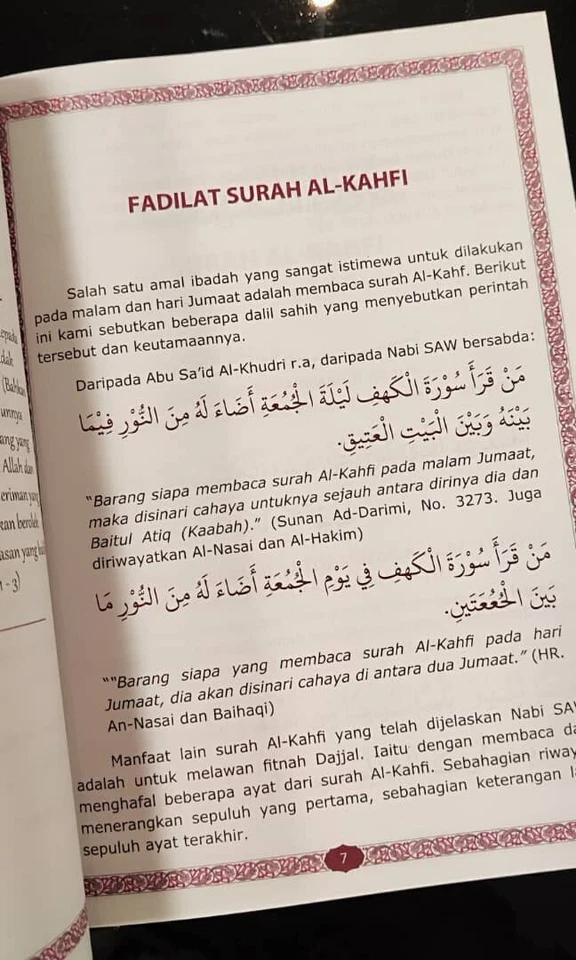 FADILAT SURAH AL-KAHFI
Salah satu amal ibadah yang sangat istimewa untuk dilakukan
pada malam dan hari Jumaat adalah membaca surah Al-Kahf. Berikut
ini kami sebutkan beberapa dalil sahih yang menyebutkan perintah
tersebut dan keutamaannya.
Daripada Abu Sa'id Al-Khudri r.a, daripada Nabi SAW bersabda:
مَنْ قَرَأَ سُوْرَةَ الْكَهفِ لَيْلَةَ الْجُمُعَةِ أَضَاءَ لَهُ مِنَ النُّوْرِ فِيْمَا
بَيْنَهُ وَبَيْنَ الْبَيْتِ الْعَتِيقِ.
"Barang siapa membaca surah Al-Kahfi pada malam Jumaat,
maka disinari cahaya untuknya sejauh antara dirinya dia dan
Baitul Atiq (Kaabah)." (Sunan Ad-Darimi, No. 3273. Juga
diriwayatkan Al-Nasai dan Al-Hakim)
مَنْ قَرَأَ سُوْرَةَ الْكَهفِ فِي يَوْمِ الْجُمُعَةِ أَضَاءَ لَهُ مِنَ النُّوْرِ مَا
بَيْنَ
""Barang siapa yang membaca surah Al-Kahfi pada hari
Jumaat, dia akan disinari cahaya di antara dua Jumaat." (HR.
An-Nasai dan Baihaqi)
Manfaat lain surah Al-Kahfi yang telah dijelaskan Nabi SA
adalah untuk melawan fitnah Dajjal. Iaitu dengan membaca da
menghafal beberapa ayat dari surah Al-Kahfi. Sebahagian riway
menerangkan sepuluh yang pertama, sebahagian keterangan la
sepuluh ayat terakhir.
7